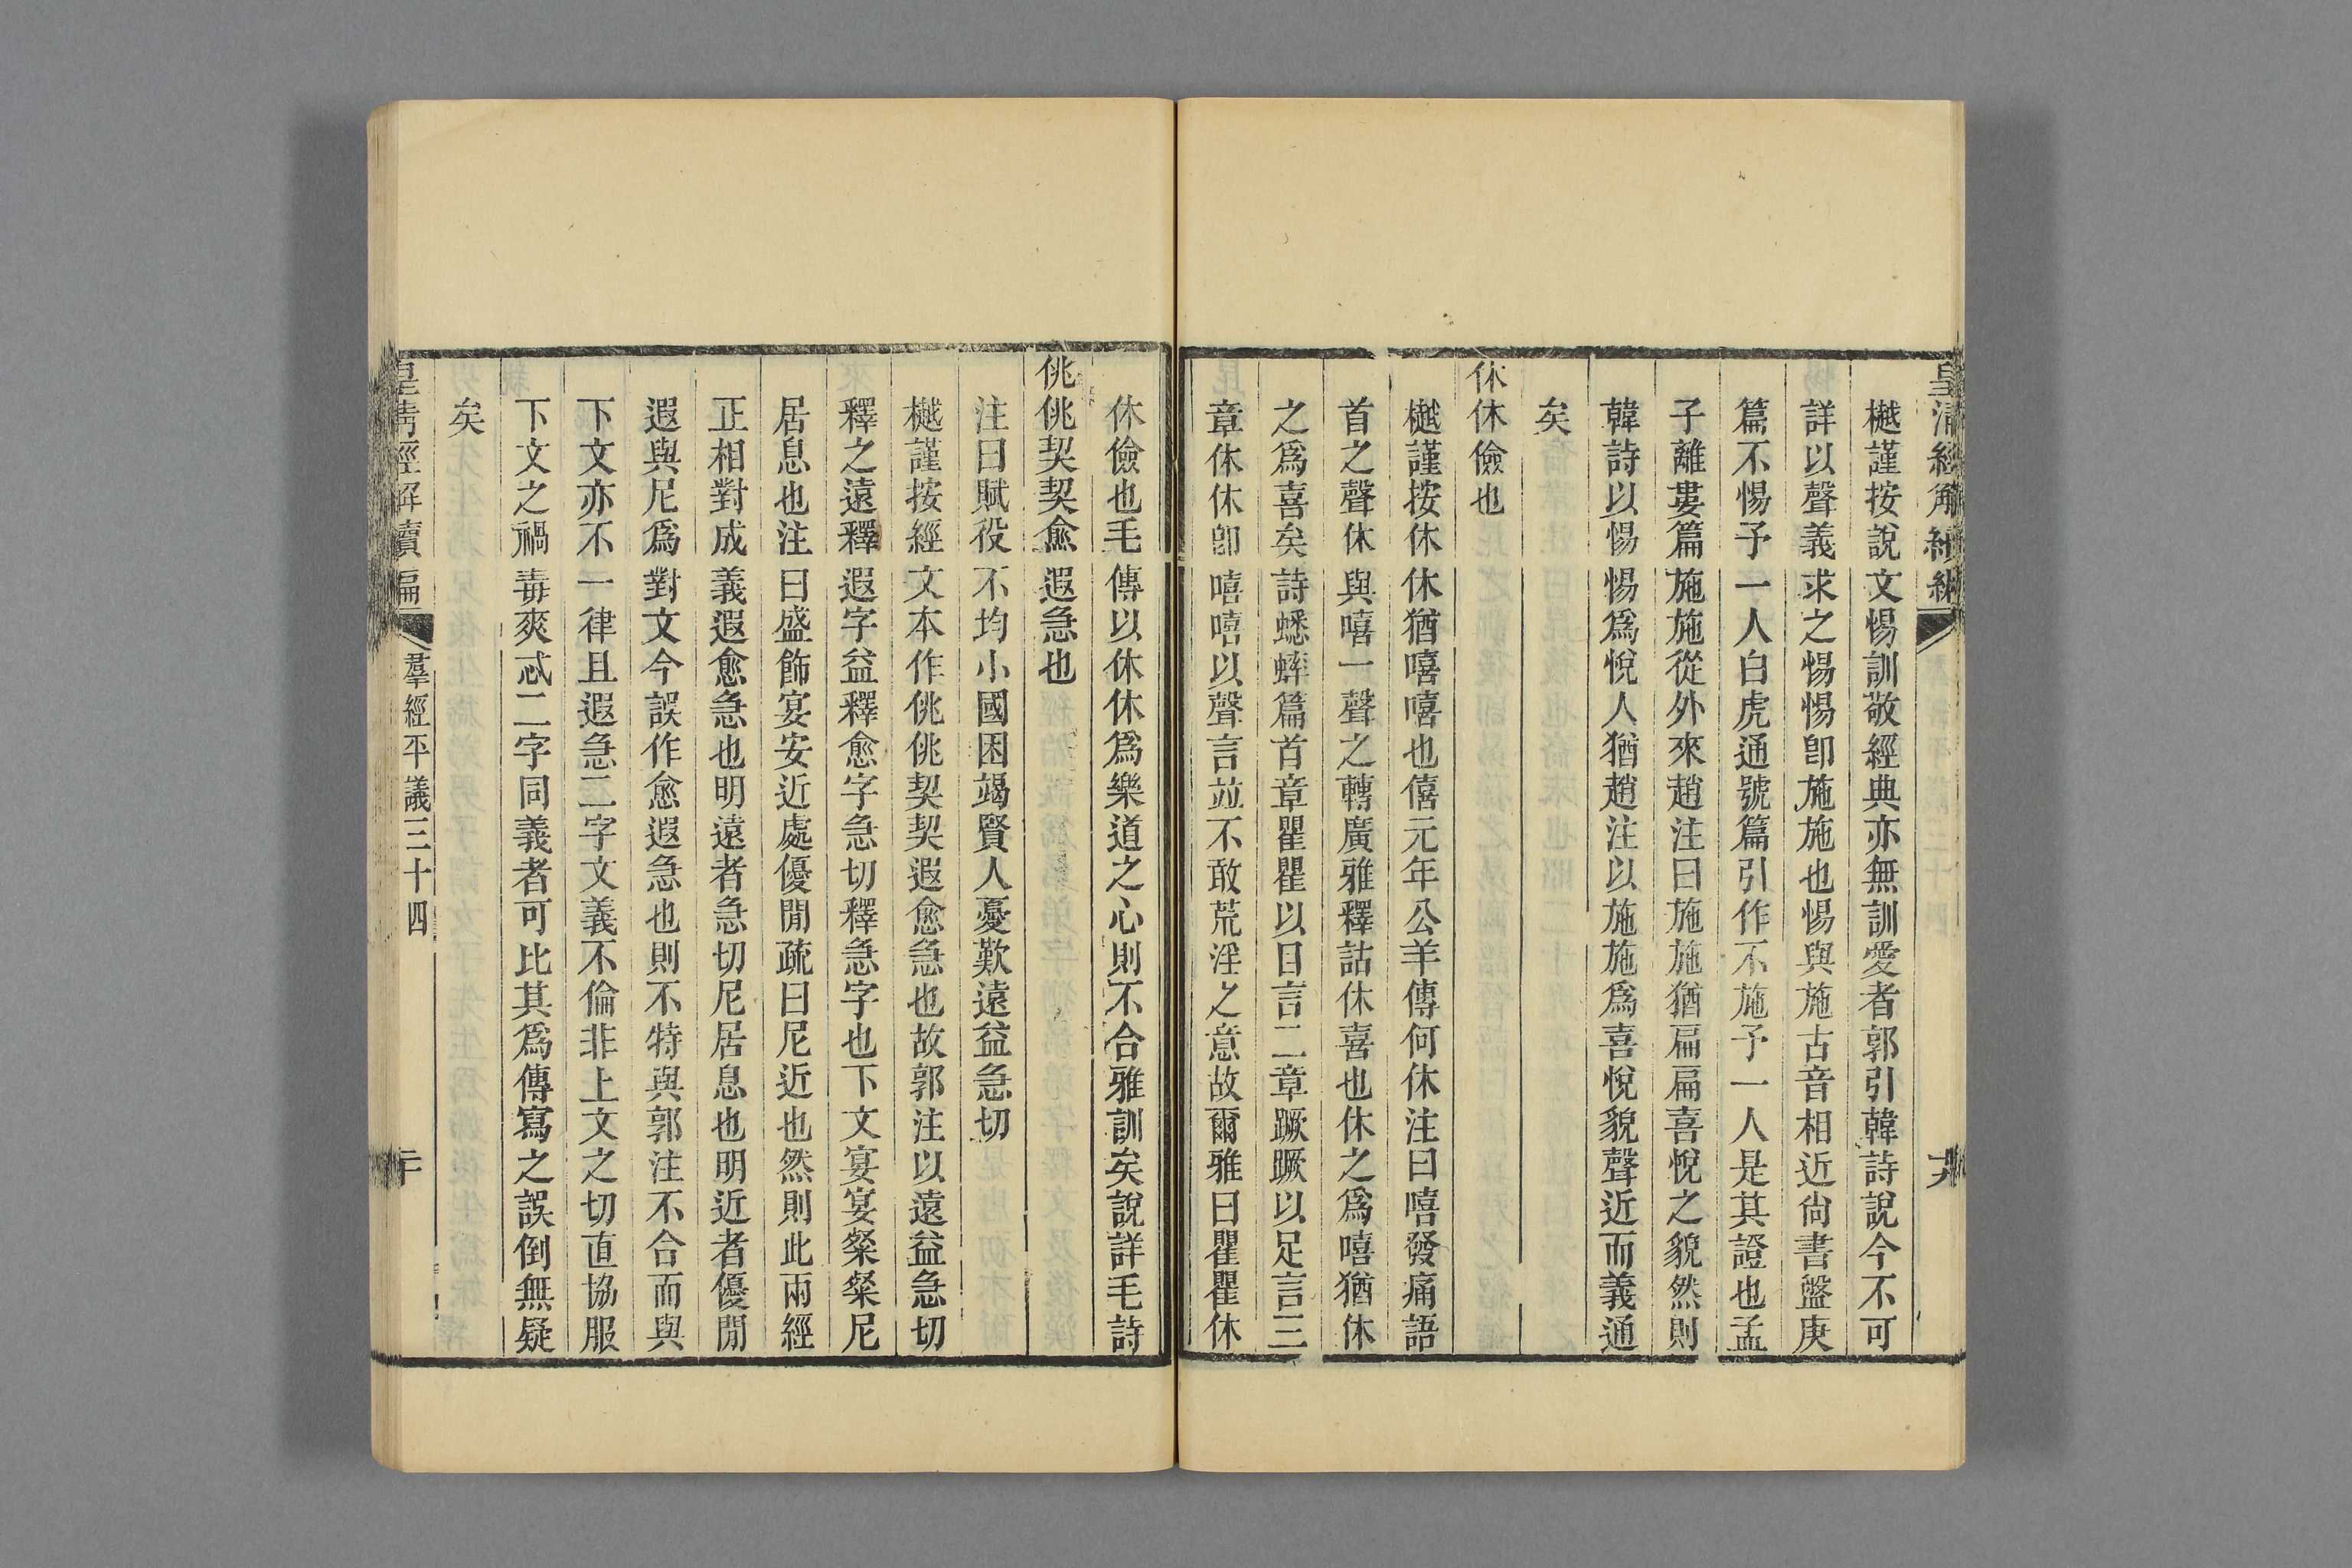 樾謹按說文惕訓敬經典亦無訓愛者郭引韓詩說今不可
詳以聲義求之惕惕卽施施也惕與施古音相近尙書盤庚
篇不惕予一人白虎通號篇引作不施予一人是其證也孟
子離婁篇施施從外來趙注曰施施猶扁扁喜悅之貌然則
韓詩以惕惕爲悅人猶趙注以施施爲喜悅貌聲近而義通
矣
休休儉也
樾謹按休休猶嘻嘻也僖元年公羊傳何休注曰嘻發痛語
首之聲休與嘻一聲之轉廣雅釋詁休喜也休之爲嘻猶休
之爲喜矣詩蟋蟀篇首章瞿瞿以目言二章蹶蹶以足言三
章休休卽嘻嘻以聲言並不敢荒淫之意故爾雅曰瞿瞿休
休儉也毛傳以休休爲樂道之心則不合雅訓矣說詳毛詩
佻佻契契愈遐急也
注曰賦役不均小國困竭賢人憂歎遠益急切
樾謹按經文本作佻佻契契遐愈急也故郭注以遠益急切
釋之遠釋遐字益釋愈字急切釋急字也下文宴宴粲粲尼
居息也注曰盛飾宴安近處優閒疏曰尼近也然則此兩經
正相對成義遐愈急也明遠者急切尼居息也明近者優閒
遐與尼爲對文今誤作愈遐急也則不特與郭注不合而與
下文亦不一律且遐急二字文義不倫非上文之切直協服
下文之禍毒爽忒二字同義者可比其爲傳寫之誤倒無疑
矣
皇淸經解續編
羣經平議三十四
二十